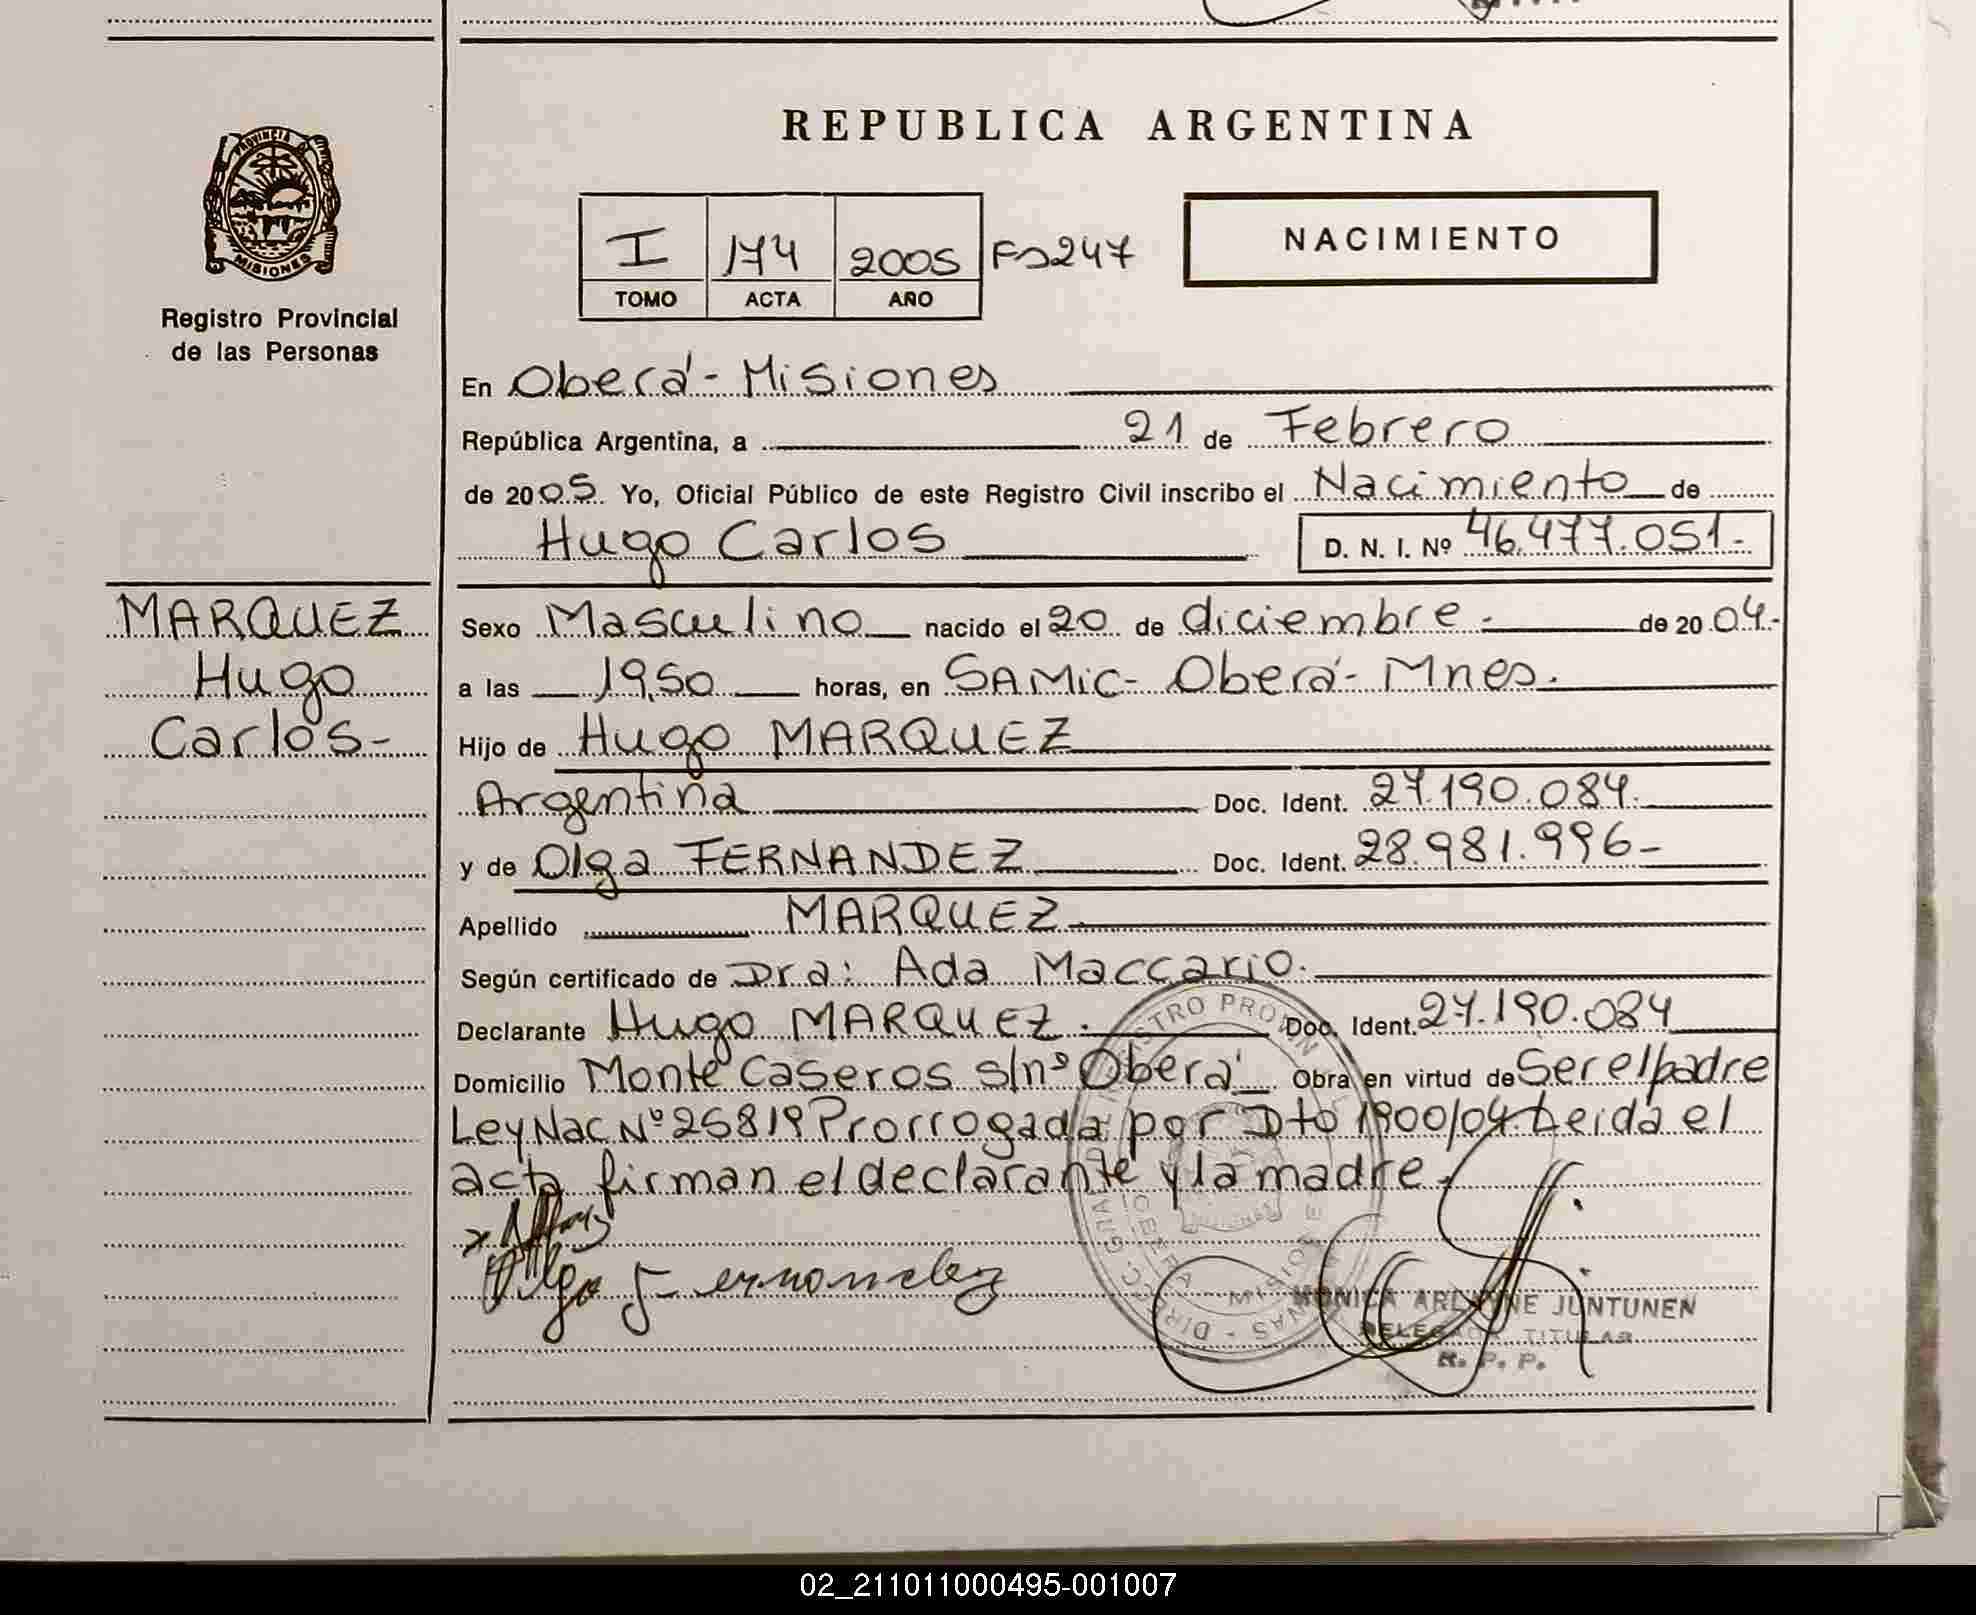 PROVINCIA DE
MISIONES
Registro Provincial
de las Personas
MARQUEZ
Hugo
Carlos-
REPUBLICA ARGENTINA
I 174 2005 Fº247
TOMO ACTA AÑO
NACIMIENTO
En Oberá - Misiones
República Argentina, a 21 de Febrero
de 2005 Yo, Oficial Público de este Registro Civil inscribo el Nacimiento de
Hugo Carlos D. N. I. Nº 46.477.051.-
Sexo Masculino nacido el 20 de diciembre.- de 2004.-
a las 19,50 horas, en SAMIC- Oberá- Mnes.
Hijo de Hugo MARQUEZ
Argentina Doc. Ident. 27.190.084.
y de Olga FERNANDEZ Doc. Ident. 28.981.996-
Apellido MARQUEZ
Según certificado de Dra: Ada Maccario.
Declarante Hugo MARQUEZ. Doc. Ident. 27.190.084
Domicilio Monte Caseros s/nº Oberá Obra en virtud de Ser el padre
Ley Nac Nº 25819 Prorrogada por Dto 1900/04. Leida el
acta firman el declarante y la madre.
Olga Fernandez
MONICA ARLYNE JUNTUNEN
DELEGADA TITULAR
R. P. P.
02_211011000495-001007